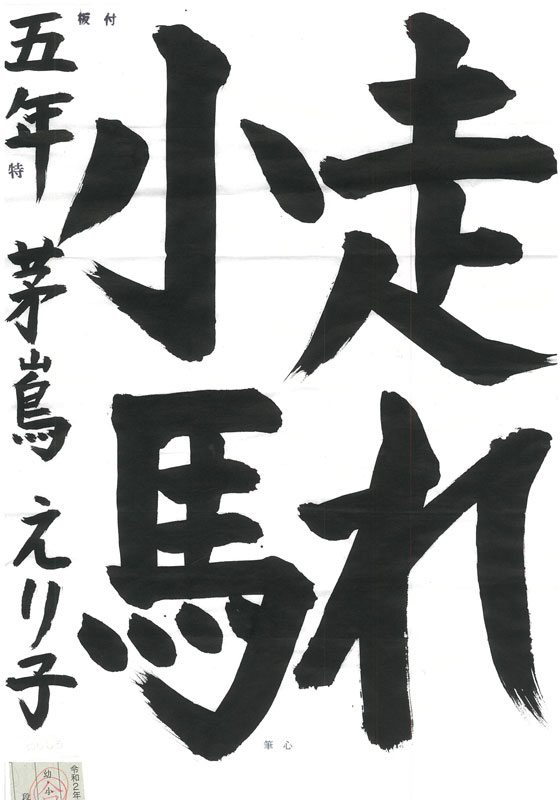 走れ
小馬
五年 茅嶌 えり子
板付
特
筆心
のりしろ
令和2年
幼小
段